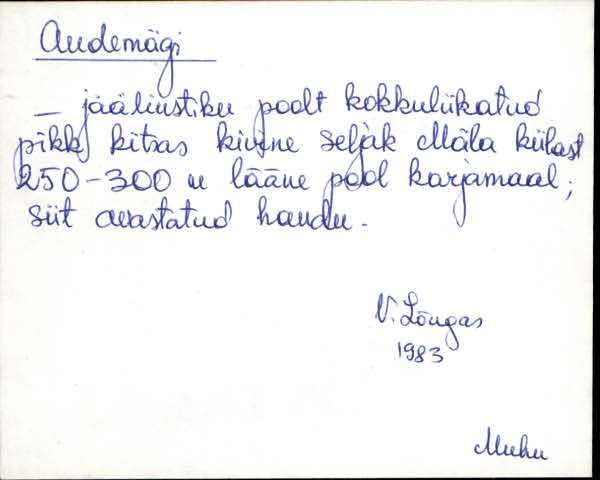 Audemägi
— jääliustiku poolt kokkulükatud
pikk, kitsas kivine seljak Mäla külast
250-300 m lääne pool karjamaal;
siit avastatud haudu.
V. Lõugas
1983
Muhu